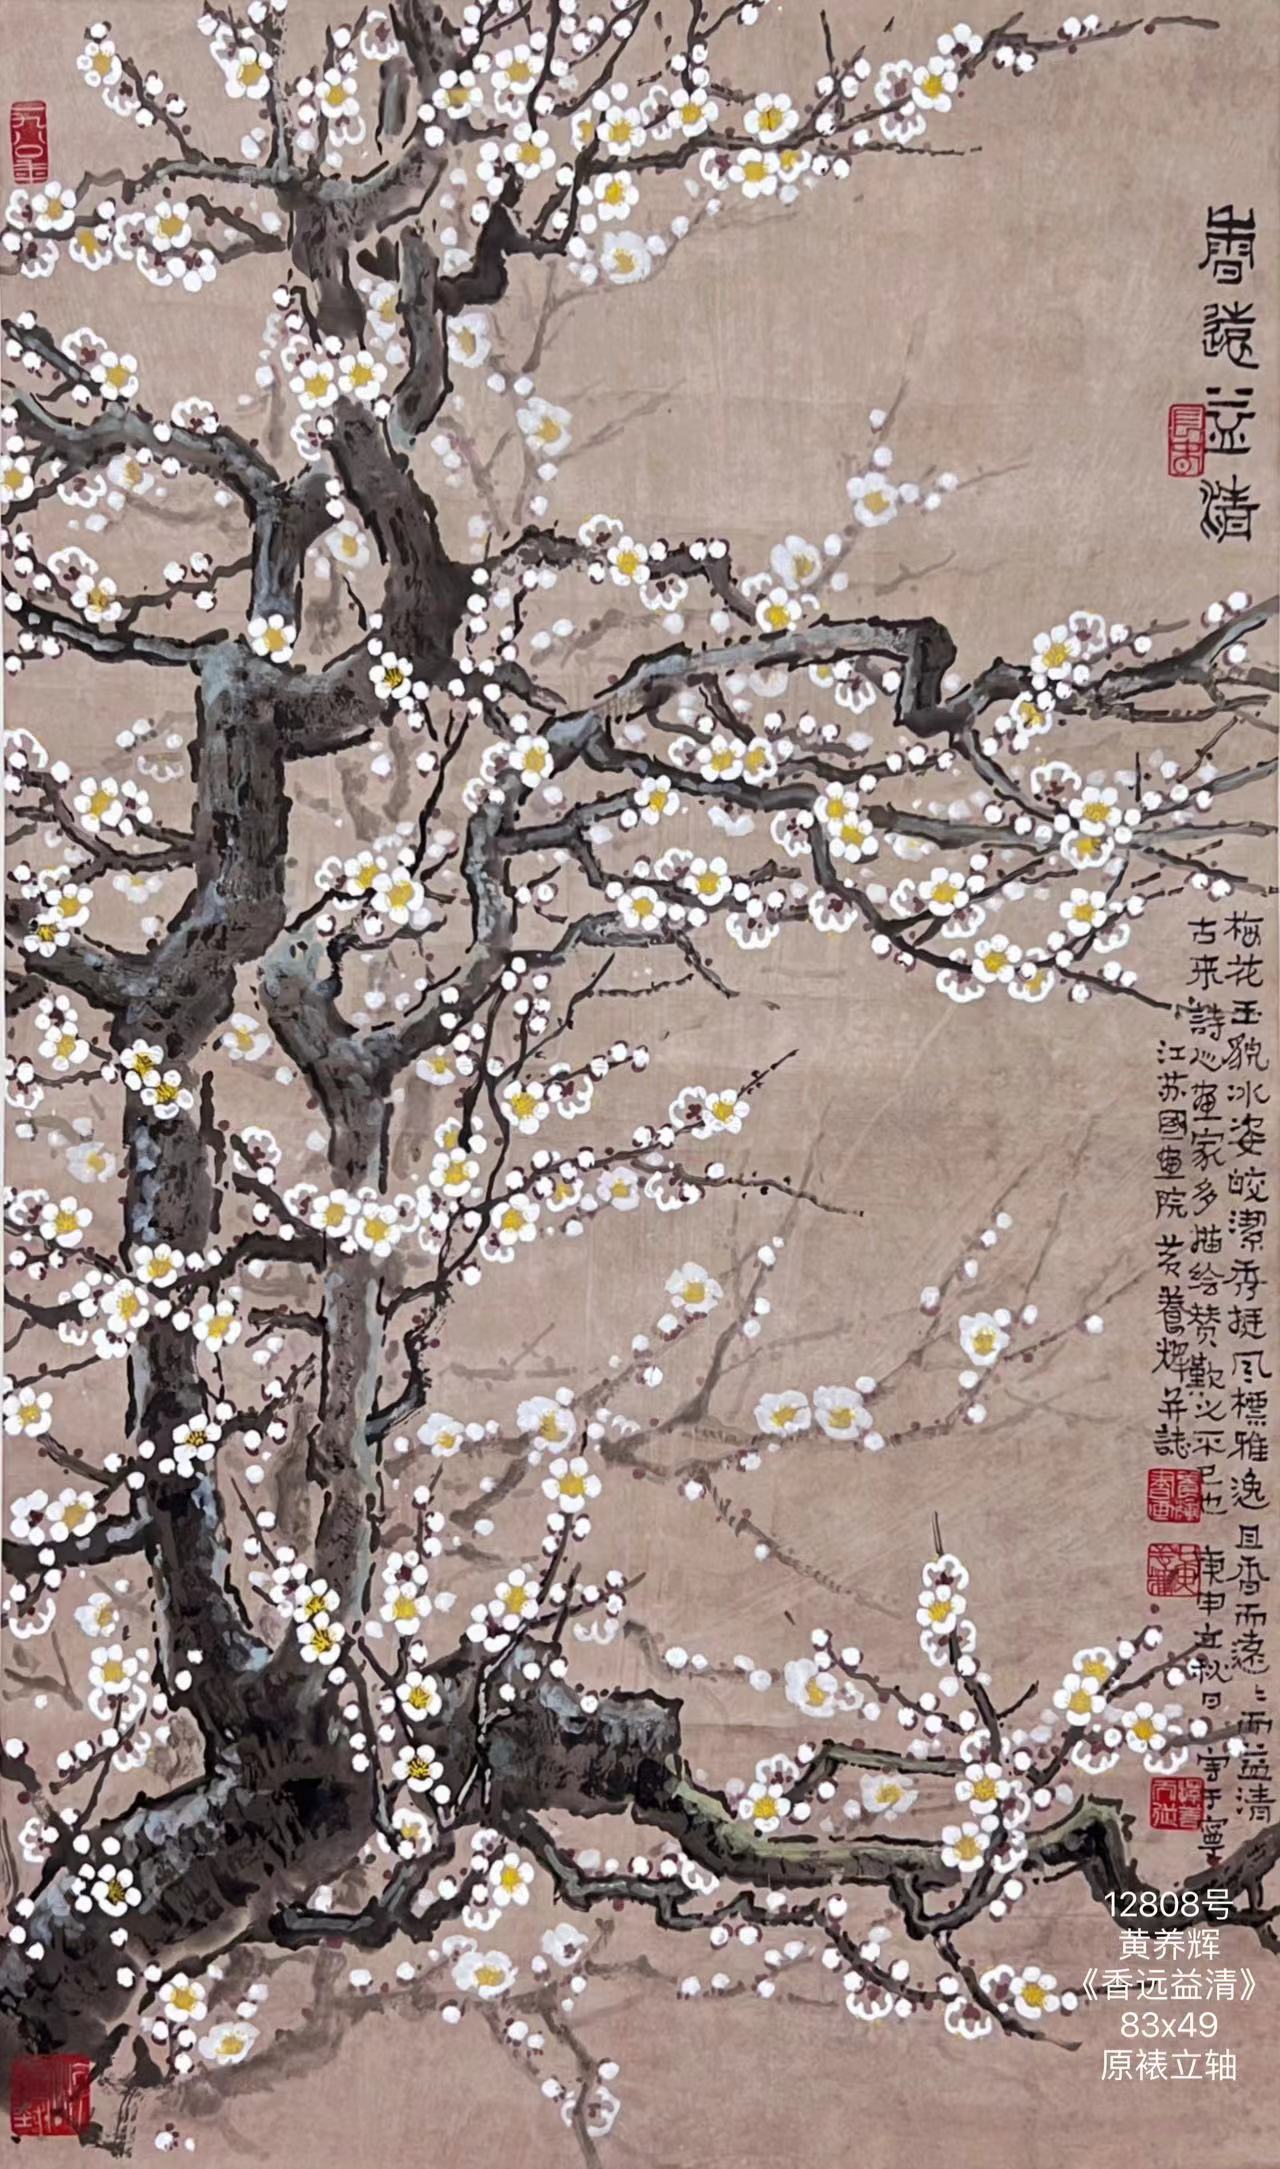 香遠益清
梅花玉貌冰姿皎潔秀挺風標雅逸且香而遠遠而益清
古来詩心畫家多描绘赞歎之不已也 庚申立秋日 写于寧
江苏國畫院 黄養辉并誌
一九八〇年
12808号
黄养辉
《香远益清》
83x49
原裱立轴